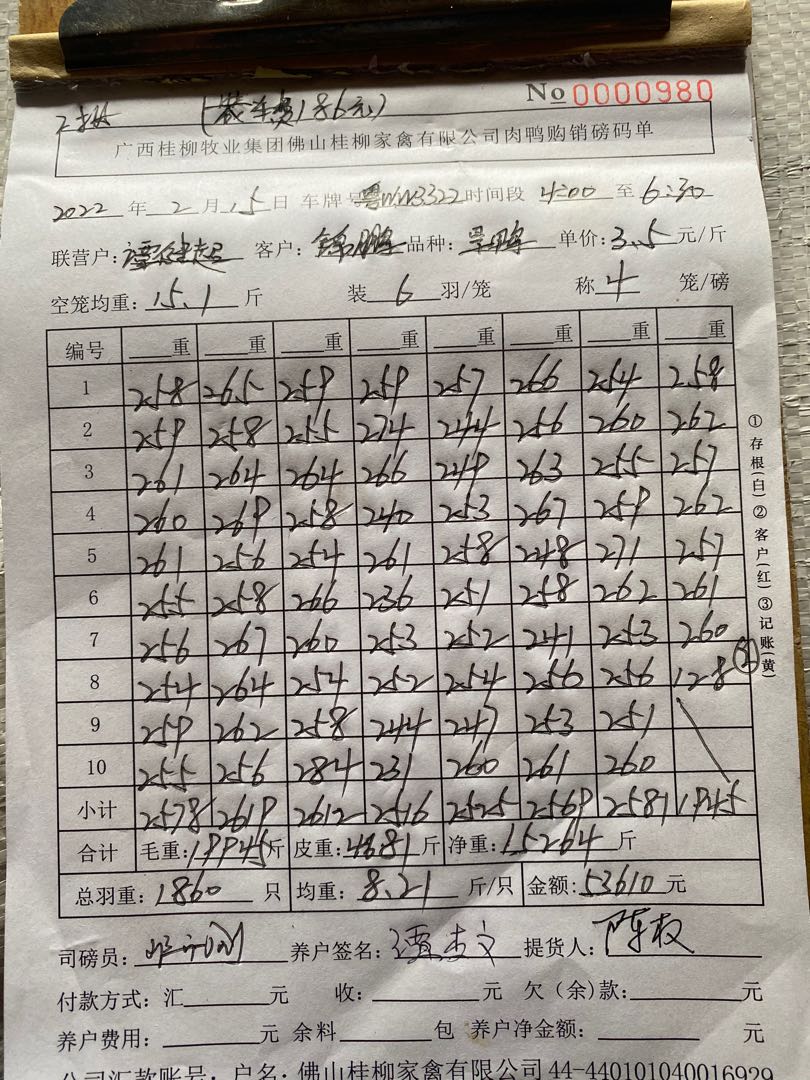 (装车费186元)
No 0000980
广西桂柳牧业集团佛山桂柳家禽有限公司肉鸭购销磅码单
2022年2月15日 车牌号 粤WW3322 时间段 4:00 至 6:30
联营户: 客户:锦鹏 品种: 单价:3.5元/斤
空笼均重:15.1斤 装6羽/笼 称4笼/磅
编号 重 重 重 重 重 重 重 重
1 258 265 259 259 257 266 254 258
2 259 258 255 274 244 256 260 262
3 261 264 264 266 249 263 255 257
4 260 269 258 240 253 267 259 262
5 261 256 254 261 258 248 271 257
6 255 258 266 236 251 258 262 261
7 256 267 260 253 252 241 253 260
8 254 264 254 252 254 256 256 128 ②
9 259 262 258 244 247 253 251
10 255 256 284 231 260 261 260
小计 2578 2619 2612 2516 2525 2569 2581 1945
合计 毛重:19945斤 皮重:4681斤 净重:15264斤
总羽重:1860只 均重:8.21斤/只 金额:53610元
司磅员: 养户签名:谭杰文 提货人:陈权
付款方式:汇 元 收: 元 欠(余)款: 元
养户费用: 元 余料 包 养户净金额: 元
公司汇款账号:户名:佛山桂柳家禽有限公司44-440101040016929
①存根(白)②客户(红)③记账(黄)